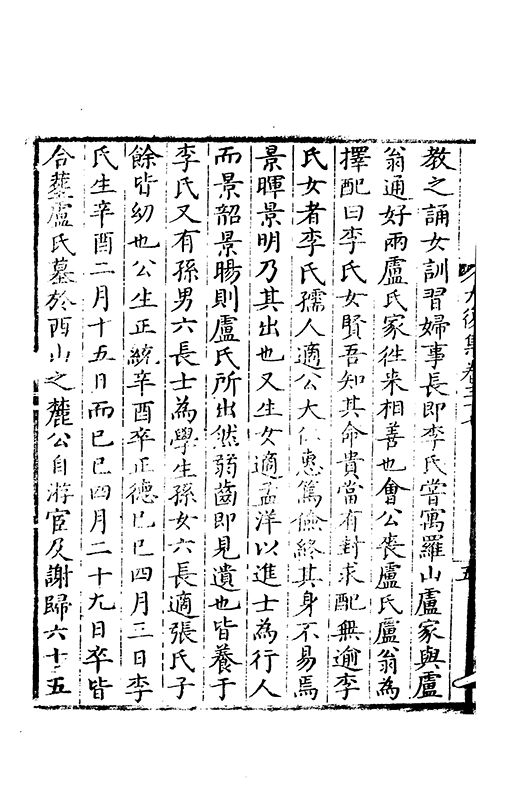 教之誦女訓習婦事長即李氏嘗寓羅山盧家與盧
翁通好兩盧氏家往來相善也會公喪盧氏盧翁為
擇配曰李氏女賢吾知其命貴當有對求配無逾李
氏女者李氏孺人適公大仁惠篤儉終其身不易焉
景暉景明乃其出也又生女適孟洋以進士為行人
而景韶景暘則盧氏所出然弱齒即見遺也皆養于
李氏又有孫男六長士為學生孫女六長適張氏子
餘皆幼也公生正統辛酉卒正德己巳四月三日李
氏生辛酉二月十五日而己巳四月二十九日卒皆
合塟盧氏墓於西山之麓公自游宦及謝歸六十五
大復集卷三十七
五